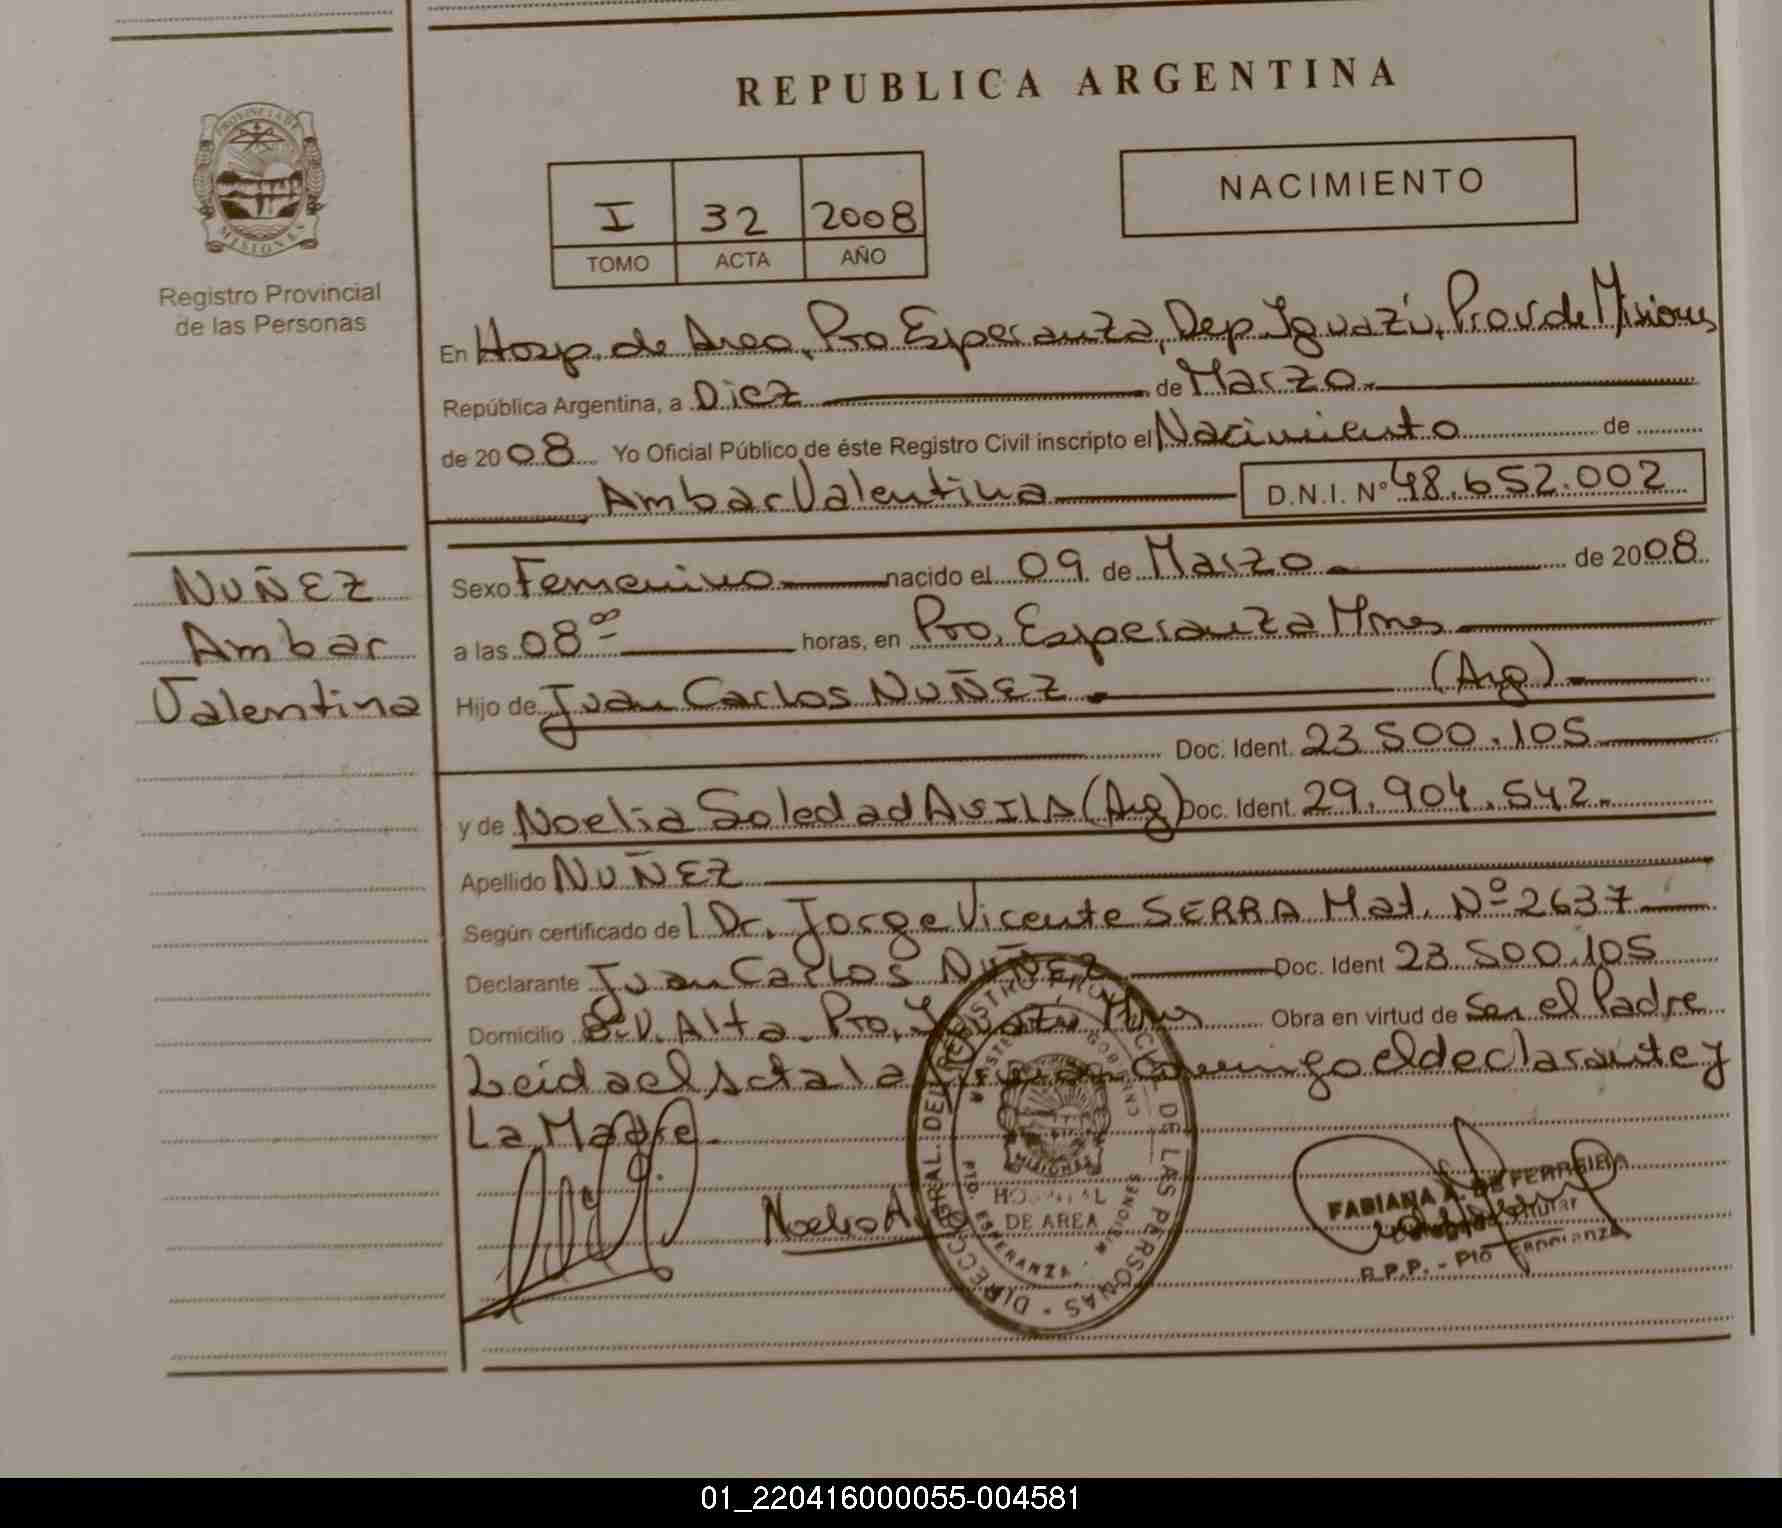 REPUBLICA ARGENTINA
PROVINCIA DE
MISIONES
Registro Provincial
de las Personas
I 32 2008
TOMO ACTA AÑO
NACIMIENTO
En Hosp. de Area, Pto Esperanza, Dep. Iguazú, Prov de Misiones
República Argentina, a Diez de Marzo
de 2008 Yo Oficial Público de éste Registro Civil inscripto el Nacimiento de
Ambar Valentina D.N.I. Nº 48.652.002
NUÑEZ
Ambar
Valentina
Sexo Femenino nacido el 09 de Marzo de 2008
a las 08 ⁰⁰ horas, en Pto. Esperanza Mnes
Hijo de Juan Carlos NUÑEZ (Arg)
Doc. Ident. 23.500.105
y de Noelia Soledad AVILA (Arg) Doc. Ident. 29.904.542
Apellido NUÑEZ
Según certificado del Dr. Jorge Vicente SERRA Mat. Nº 2637
Declarante Juan Carlos NUÑEZ Doc. Ident 23.500.105
Domicilio Alta. Pto. Iguazú Mnes Obra en virtud de Ser el Padre
Leida el Acta la firman Conmigo el declarante y
La Madre.
Noelia
DIRECCION GRAL. DEL REGISTRO PROVINCIAL DE LAS PERSONAS
MISIONES
HOSPITAL
DE AREA
PTO. ESPERANZA
FABIANA A. DE FERREIRA
R.P.P. - Pto Esperanza
01_220416000055-004581